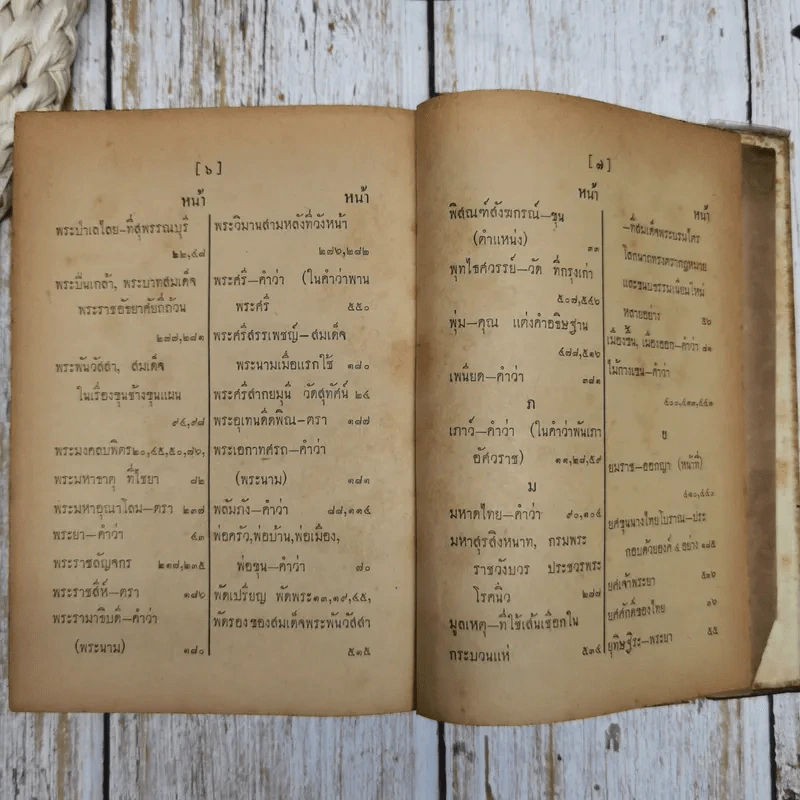 [ ๖ ]
หน้า
พระป่าเลไลย-ที่สุพรรณบุรี
๒๒,๔๘
พระปิ่นเกล้า, พระบาทสมเด็จ
พระราชอัธยาศัยถี่ถ้วน
๒๗๗,๒๘๑
พระพันวัสสา, สมเด็จ
ในเรื่องขุนช้างขุนแผน
๙๔,๙๘
พระมงคลบพิตร๒๐,๔๕,๕๐,๗๖,
พระมหาธาตุ ที่ไชยา ๘๒
พระมหาอุณาโลม-ตรา ๒๓๗
พระยา-คำว่า ๔๓
พระราชลัญจกร ๒๑๗,๒๓๕
พระราชสีห์-ตรา ๑๘๖
พระรามาธิบดี-คำว่า
(พระนาม) ๑๘๐
หน้า
พระวิมานสามหลังที่วังหน้า
๒๗๖,๒๘๒
พระศรี-คำว่า (ในคำว่าพาน
พระศรี ๕๕๐
พระศรีสรรเพชญ์-สมเด็จ
พระนามเมื่อแรกใช้ ๑๘๐
พระศรีสากยมุนี วัดสุทัศน์ ๒๔
พระอุเทนดีดพิณ-ตรา ๑๘๗
พระเอกาทศรถ-คำว่า
(พระนาม) ๑๘๑
พลัมภัง-คำว่า ๘๘,๑๑๔
พ่อครัว,พ่อบ้าน,พ่อเมือง,
พ่อขุน-คำว่า ๗๐
พัดเปรียญ พัดพระ๑๓,๑๙,๔๕,
พัดรองของสมเด็จพระพันวัสสา
๕๑๕
[ ๗ ]
หน้า
พิสณฑ์สังฆกรณ์-ขุน
(ตำแหน่ง) ๓๓
พุทไธศวรรย์-วัด ที่กรุงเก่า
๕๐๗,๕๔๖
พุ่ม-คุณ แต่งคำอธิษฐาน
๔๗๗,๕๑๖
เพนียด-คำว่า ๓๘๑
ภ
เภาว์-คำว่า (ในคำว่าพันเภา
อัศวราช) ๑๑,๒๘,๕๙
ม
มหาดไทย-คำว่า ๙๐,๑๐๔
มหาสุรสิงหนาท, กรมพระ
ราชวังบวร ประชวรพระ
โรคนิ่ว ๒๗๗
มูลเหตุ-ที่ใช้เส้นเชือกใน
กระบวนแห่ ๕๓๔
หน้า
-ที่สมเด็จพระบรมไตร
โลกนาถทรงตรากฎหมาย
และขนบธรรมเนียมใหม่
หลายอย่าง ๕๖
เมืองขึ้น, เมืองออก-คำว่า ๗๑
ไม้กางเขน-คำว่า
๔๐๐,๔๑๓,๔๔๑
ย
ยมราช-ออกญา (หน้าที่)
ยศขุนนางไทยโบราณ-ประ
กอบด้วยองค์ ๔ อย่าง ๑๘๕
ยศเจ้าพระยา ๕๑๖
ยศศักดิ์ของไทย ๑๖
ยุทิษฐิระ-พระยา ๕๕